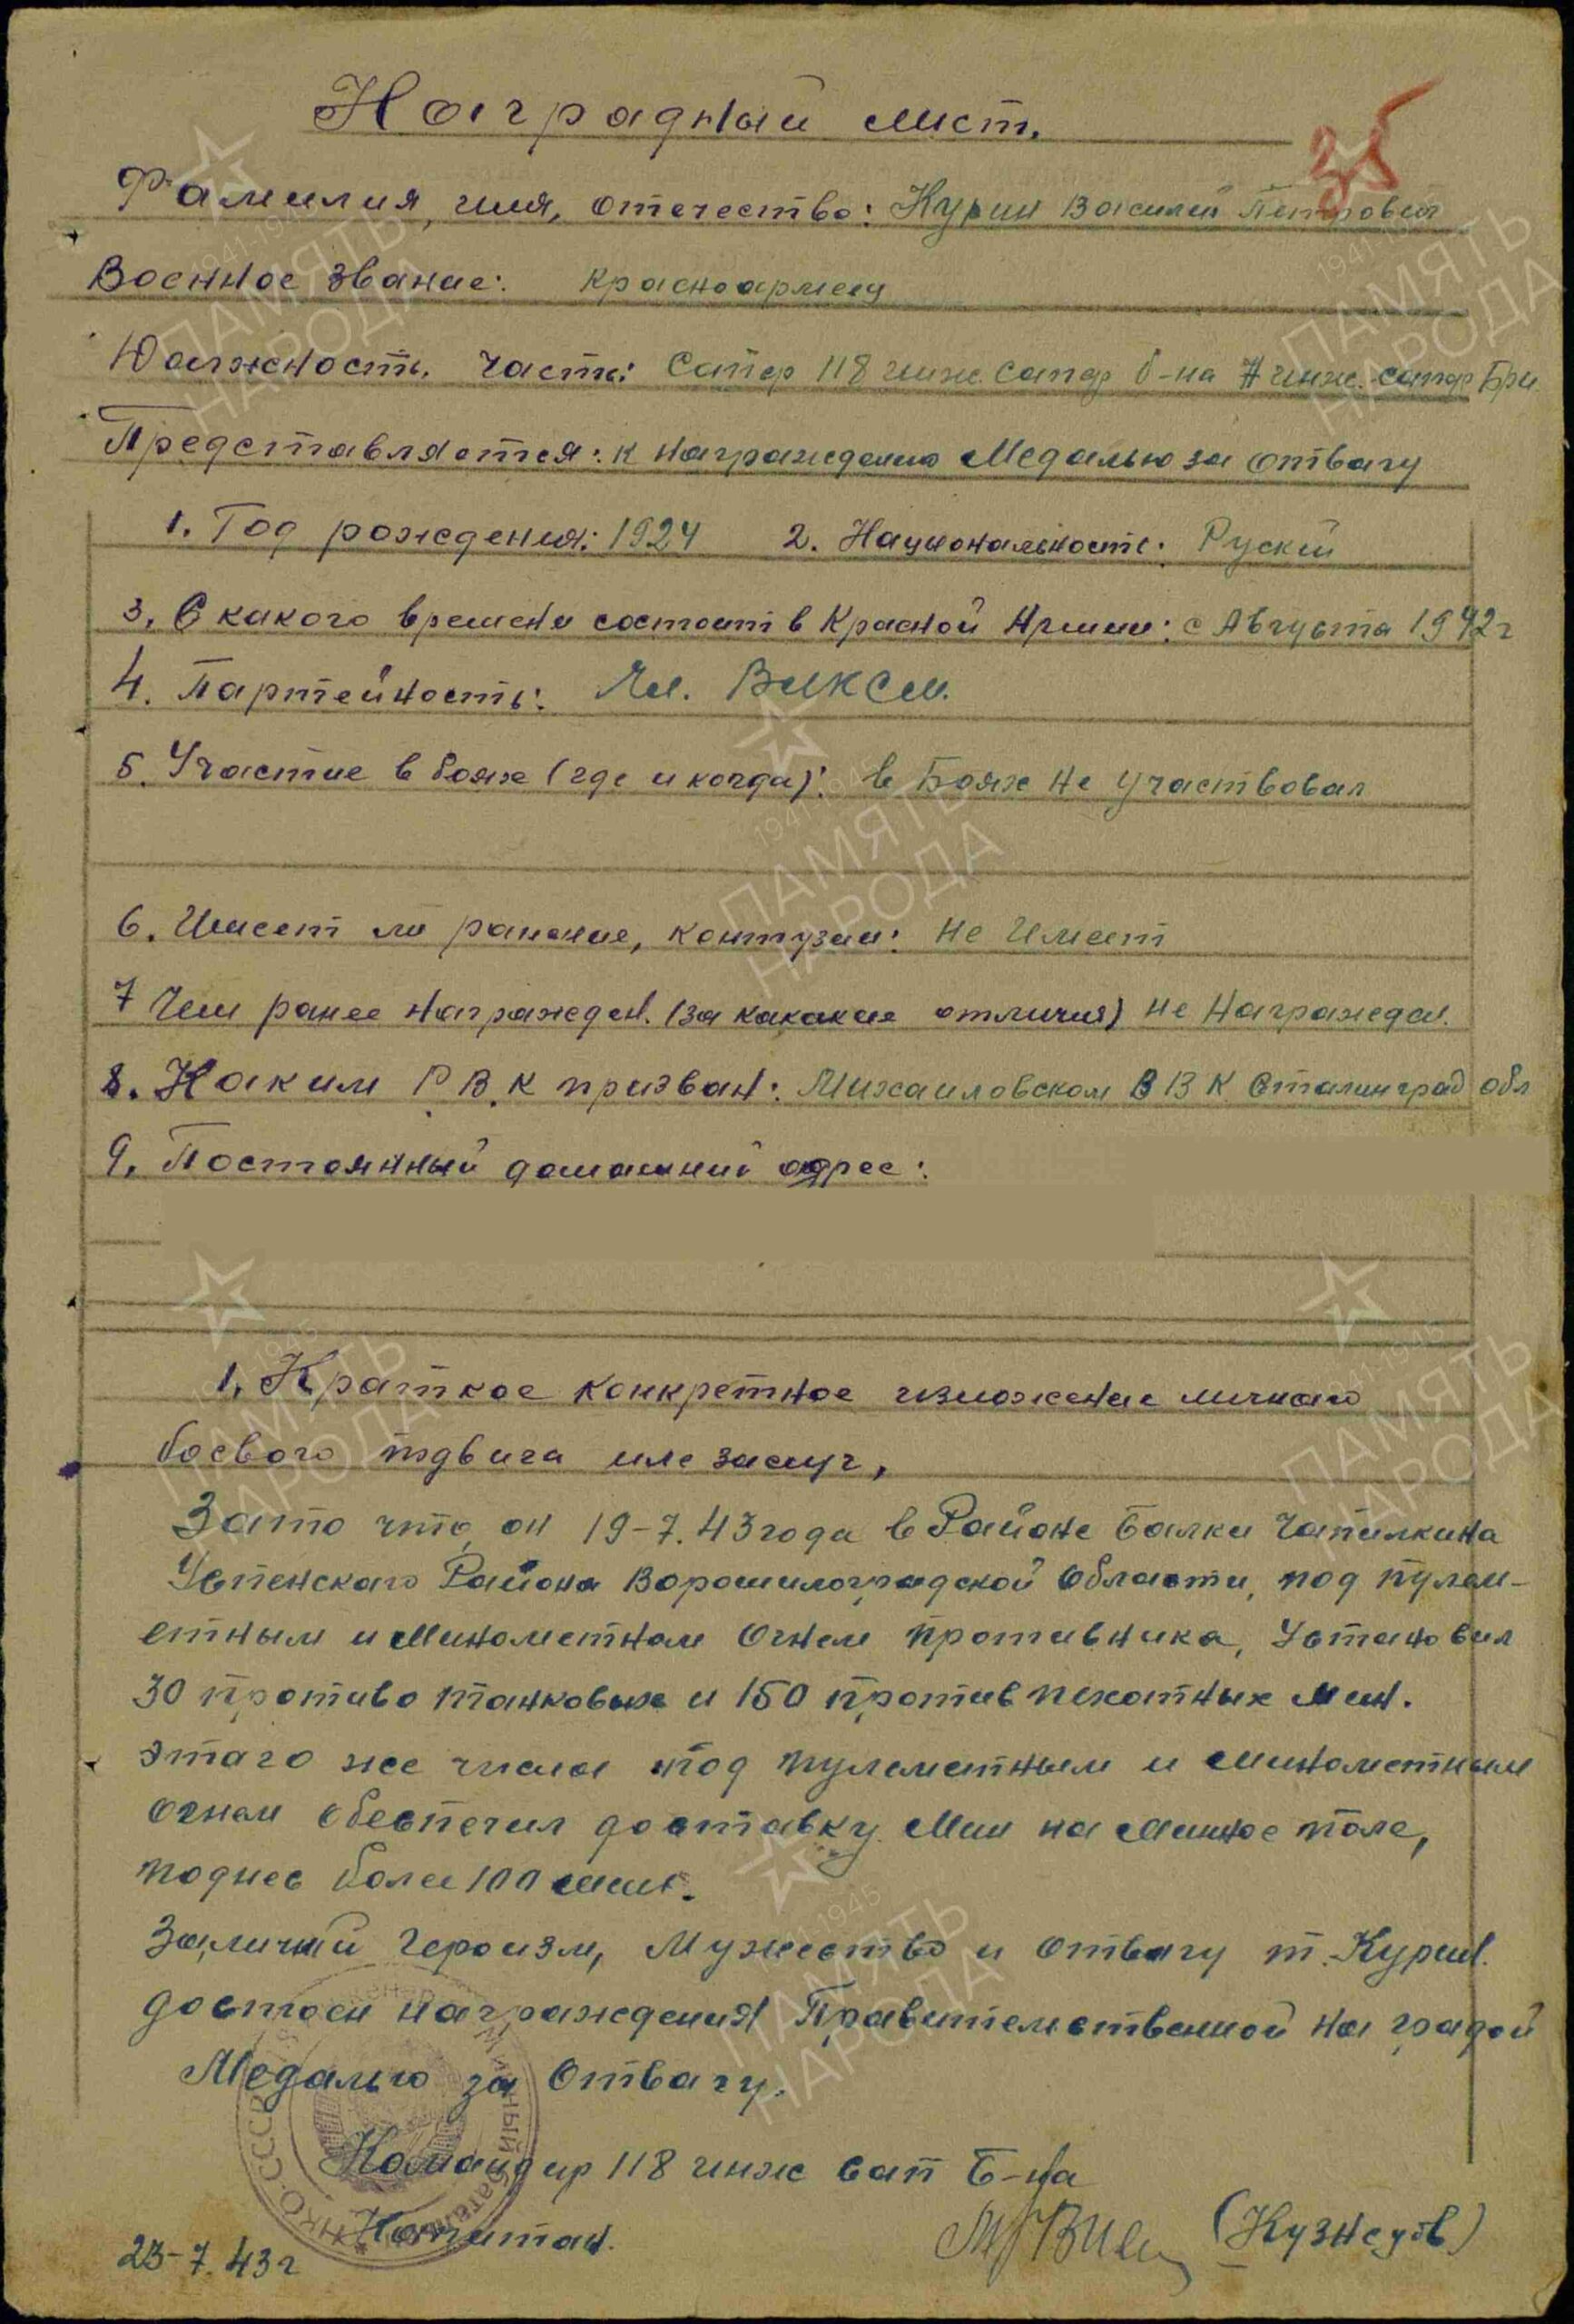 Наградный лист.
35
Фамилия, имя, отечество: Курин Василий Петрович
Военное звание: красноармеец
Должность, часть: Сапер 118 инж. сапер б-на 7 инж. сапер Бри.
Представляется: к награждению Медалью за отвагу
1. Год рождения: 1924 2. Национальность: Руский
3. С какого времени состоит в Красной Армии: с Августа 1942г
4. Партейность: Чл. ВЛКСМ.
5. Участие в боях (где и когда): в Боях не участвовал
6. Имеет ли ранение, контузии: не Имеет
7 Чем ранее награжден. (за какакие отличия) не Награжден.
8. Каким Р.В.К призван: Михаиловском ВВК Сталинград обл
9. Постоянный домашний адрес:
1. Краткое конкретное изложение личного
боевого подвига иле заслуг,
Зато что он 19-7.43 года в Районе Балки Чапилкина
Успенского Района Ворошилоградской Области, под пулем-
етным и Минометном Огнем противника, Установил
30 противо танковых и 150 против пехотных мин.
этаго же числа под пулеметным и минометным
огнем обеспечил доставку Мин на минное поле,
поднес более 100 мин.
За личный героизм, Мужество и отвагу т. Курин.
достоен награждения Правительственной на градой
Медалью за Отвагу.
Командир 118 инж сап Б-на
Капитан. (Кузнецов)
23-7.43г